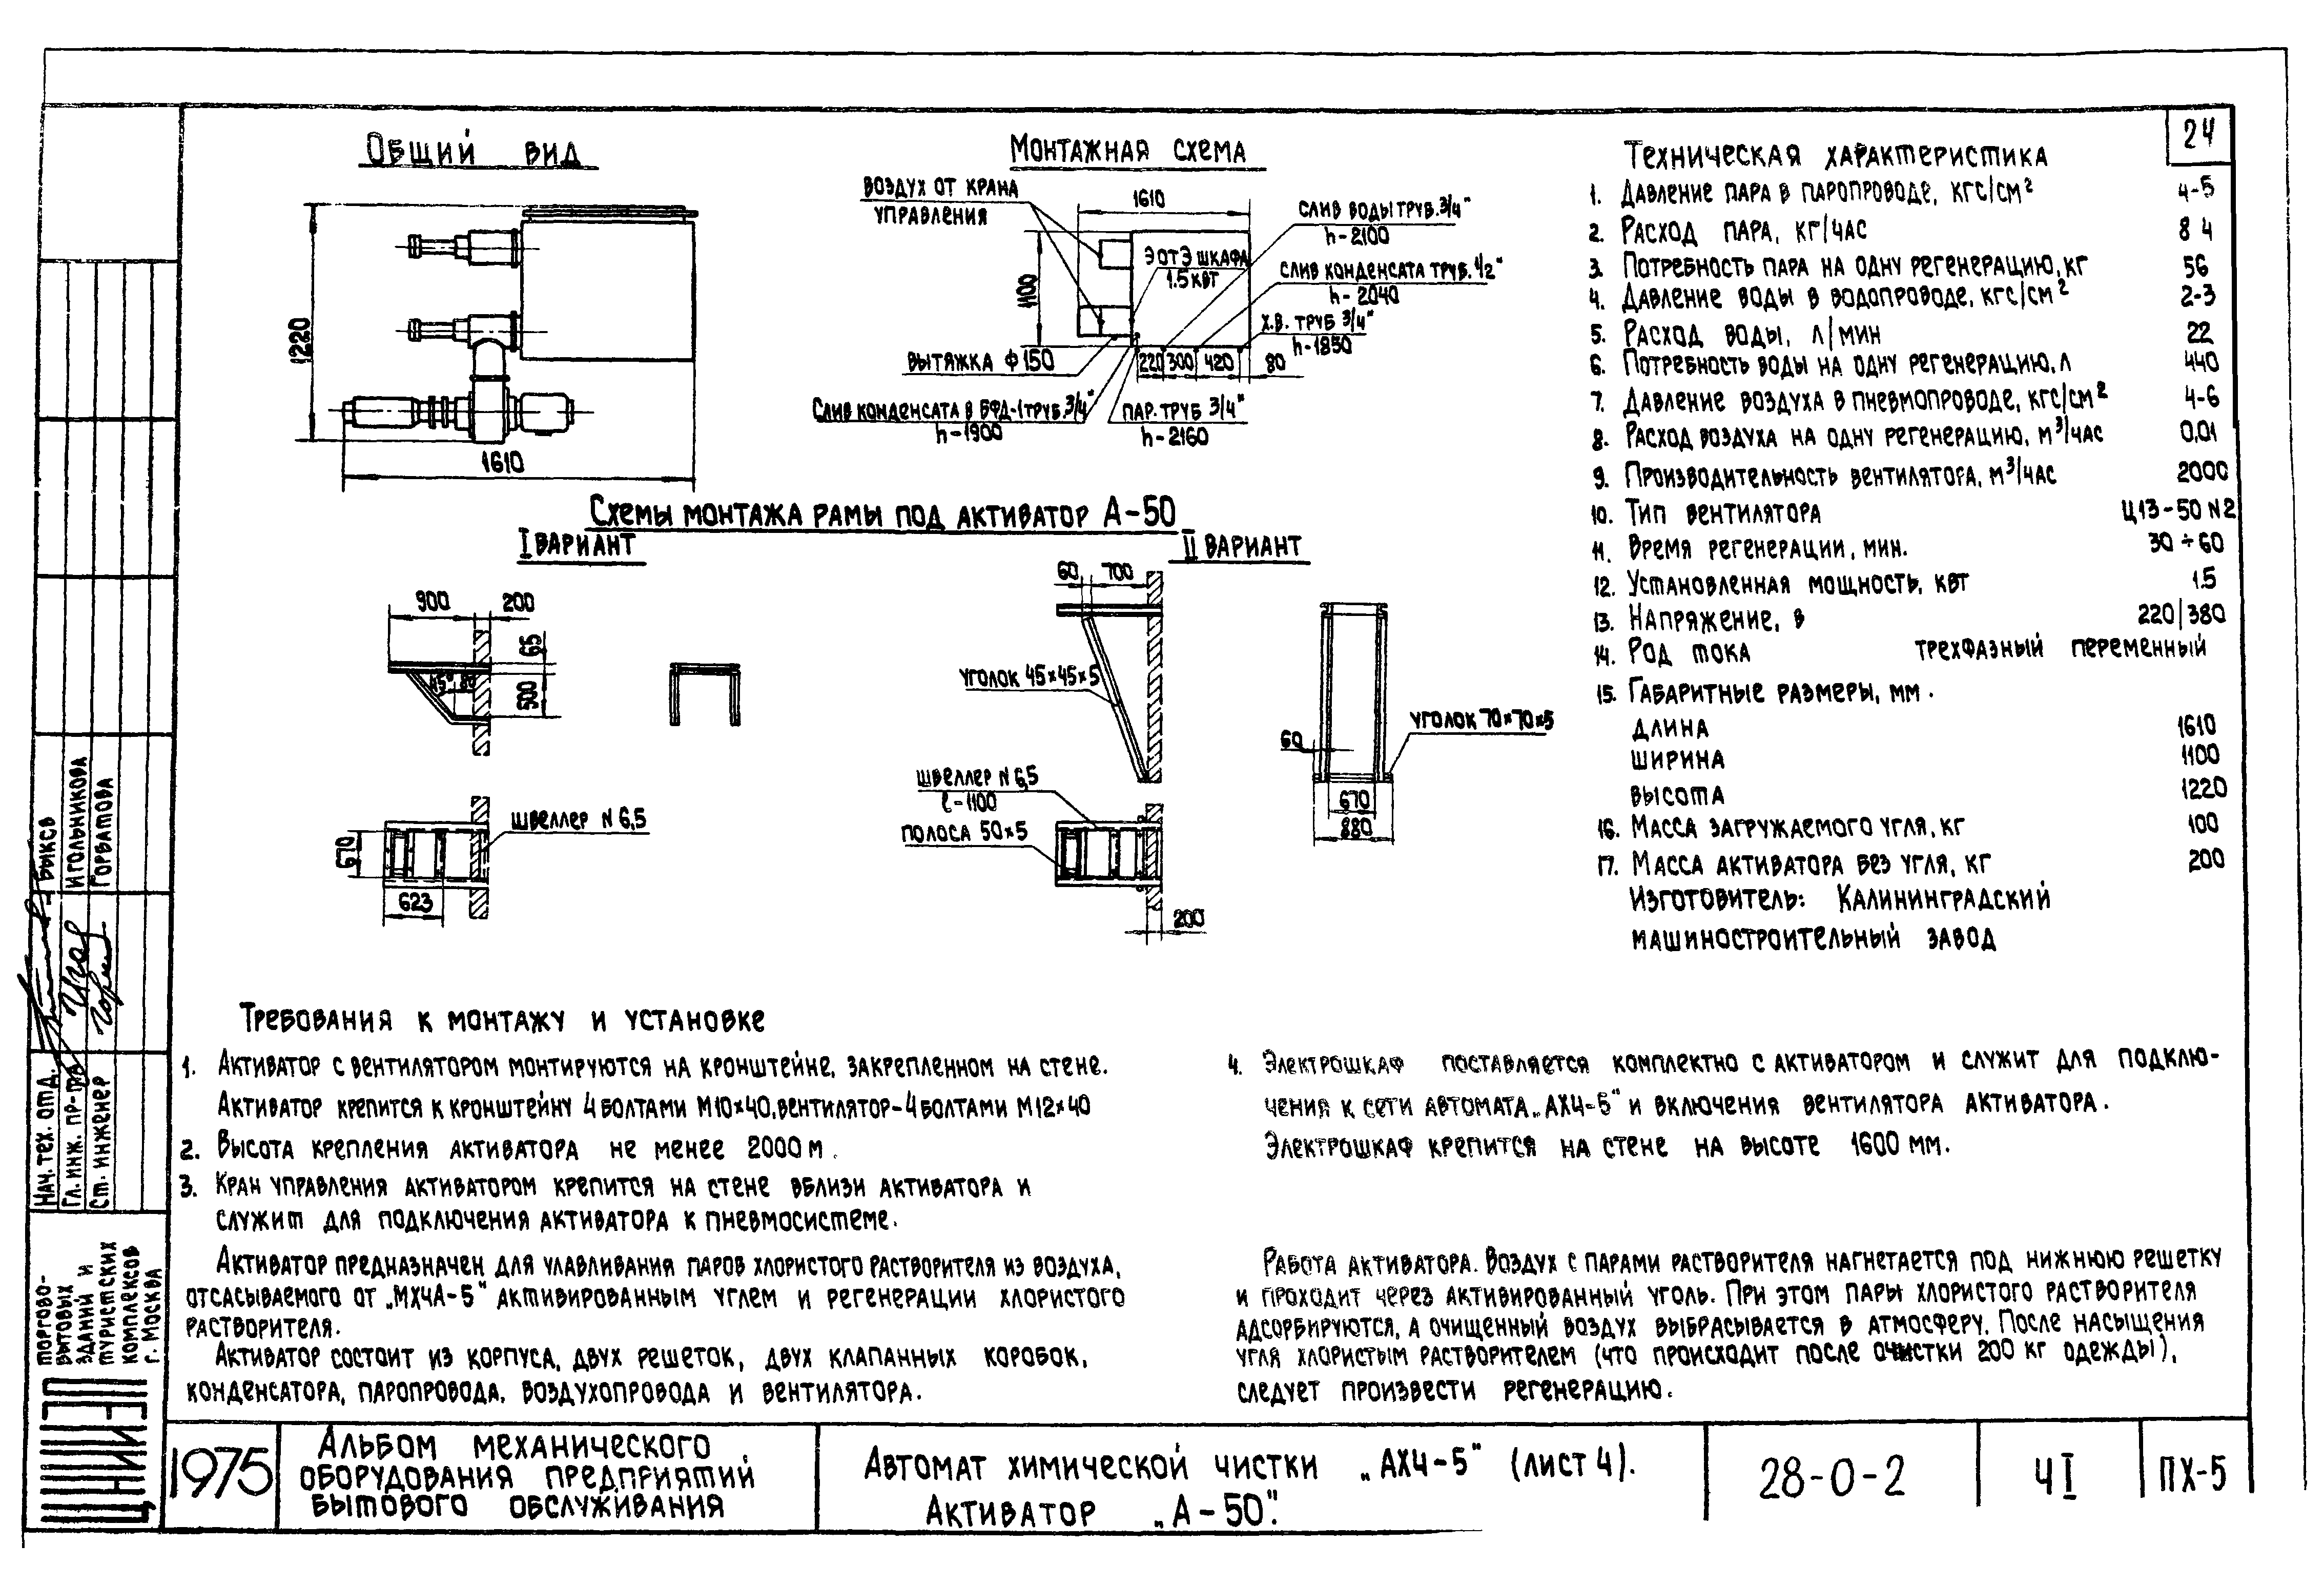 24
Общий вид
1220
1610
Монтажная схема
Воздух от крана
управления
1610
1100
Э от э шкафа
1.5 квт
Слив воды труб. 3/4"
h-2100
Слив конденсата труб. 1/2"
h-2040
Х.В. труб 3/4"
h-1850
Вытяжка ф150
220 300 420 80
Слив конденсата в БФД-1 труб. 3/4"
h-1900
Пар. труб 3/4"
h-2160
Схемы монтажа рамы под активатор А-50
I вариант
900 200
65
45° 80
500
670
623
Швеллер N 6,5
II вариант
60 700
Уголок 45×45×5
Швеллер N 6,5
ℓ-1100
Полоса 50×5
200
Уголок 70×70×5
60
670
880
Техническая характеристика
1. Давление пара в паропроводе, кгс/см² 4-5
2. Расход пара, кг/час 84
3. Потребность пара на одну регенерацию, кг 56
4. Давление воды в водопроводе, кгс/см² 2-3
5. Расход воды, л/мин 22
6. Потребность воды на одну регенерацию, л 440
7. Давление воздуха в пневмопроводе, кгс/см² 4-6
8. Расход воздуха на одну регенерацию, м³/час 0,01
9. Производительность вентилятора, м³/час 2000
10. Тип вентилятора Ц13-50 N2
11. Время регенерации, мин. 30÷60
12. Установленная мощность, квт 1.5
13. Напряжение, в 220/380
14. Род тока трехфазный переменный
15. Габаритные размеры, мм.
длина 1610
ширина 1100
высота 1220
16. Масса загружаемого угля, кг 100
17. Масса активатора без угля, кг 200
Изготовитель: Калининградский
машиностроительный завод
Требования к монтажу и установке
1. Активатор с вентилятором монтируются на кронштейне, закрепленном на стене.
Активатор крепится к кронштейну 4 болтами М10×40, вентилятор-4 болтами М12×40
2. Высота крепления активатора не менее 2000 м.
3. Кран управления активатором крепится на стене вблизи активатора и
служит для подключения активатора к пневмосистеме.
Активатор предназначен для улавливания паров хлористого растворителя из воздуха,
отсасываемого от „МХЧА-5" активированным углем и регенерации хлористого
растворителя.
Активатор состоит из корпуса, двух решеток, двух клапанных коробок,
конденсатора, паропровода, воздухопровода и вентилятора.
4. Электрошкаф поставляется комплектно с активатором и служит для подклю-
чения к сети автомата „АХЧ-5" и включения вентилятора активатора.
Электрошкаф крепится на стене на высоте 1600 мм.
Работа активатора. Воздух с парами растворителя нагнетается под нижнюю решетку
и проходит через активированный уголь. При этом пары хлористого растворителя
адсорбируются, а очищенный воздух выбрасывается в атмосферу. После насыщения
угля хлористым растворителем (что происходит после очистки 200 кг одежды),
следует произвести регенерацию.
Нач. тех. отд. Быков
Гл. инж. пр-та Игольникова
Ст. инженер Горбатова
торгово-
бытовых
зданий и
туристских
комплексов
г. Москва
1975
Альбом механического
оборудования предприятий
бытового обслуживания
Автомат химической чистки „АХЧ-5" (лист 4).
Активатор „А-50".
28-0-2
Ч I
ПХ-5